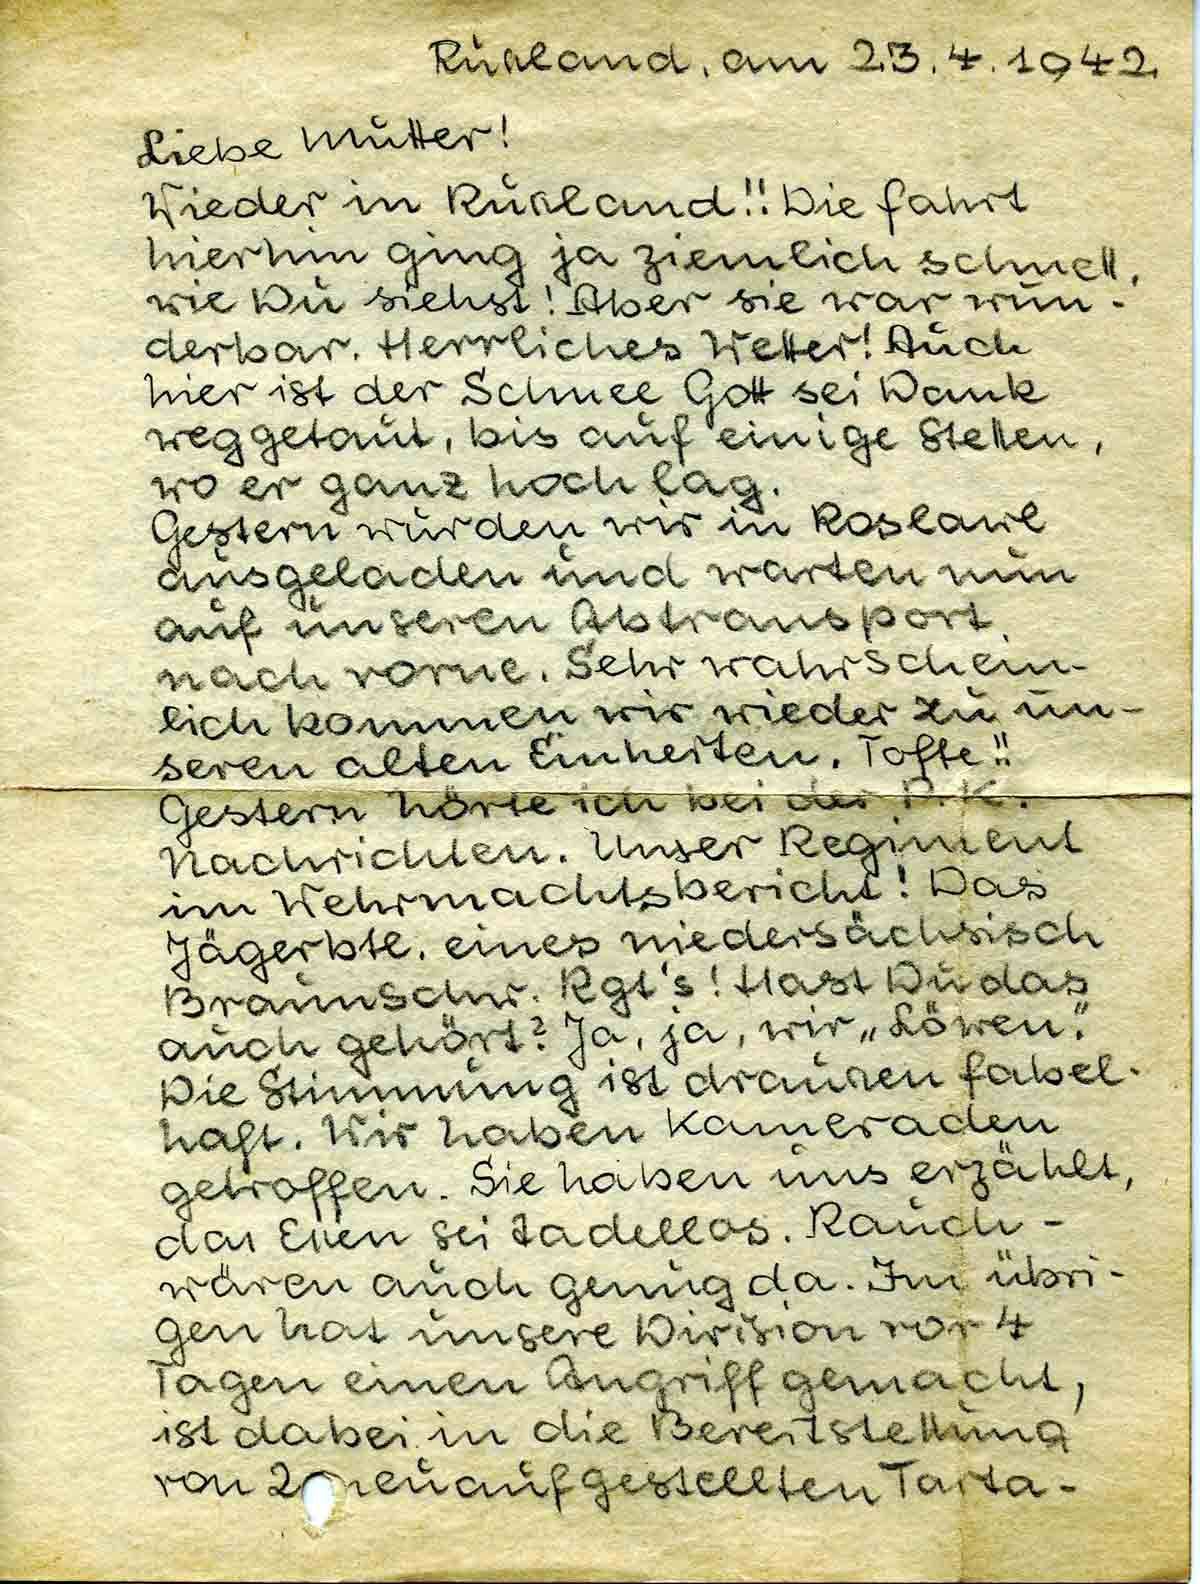 Rußland, am 23.4.1942.
Liebe Mutter!
Wieder in Rußland!! Die Fahrt
hierhin ging ja ziemlich schnell,
wie Du siehst! Aber sie war wun-
derbar. Herrliches Wetter! Auch
hier ist der Schnee Gott sei Dank
weggetaut, bis auf einige Stellen,
wo er ganz hoch lag.
Gestern wurden wir in Roslawl
ausgeladen und warten nun
auf unseren Abtransport
nach vorne. Sehr wahrschein-
lich kommen wir wieder zu un-
seren alten Einheiten. Tofte!!
Gestern hörte ich bei der P.K.
Nachrichten. Unser Regiment
im Wehrmachtsbericht! Das
Jägerbtl. eines niedersächsisch
Braunschw. Rgt's! Hast Du das
auch gehört? Ja, ja, wir „Löwen".
Die Stimmung ist draußen fabel-
haft. Wir haben Kameraden
getroffen. Sie haben uns erzählt,
das Essen sei tadellos. Rauch-
wären auch genug da. Im übri-
gen hat unsere Division vor 4
Tagen einen Angriff gemacht,
ist dabei in die Bereitstellung
von 2 neuaufgestellten Tarta-